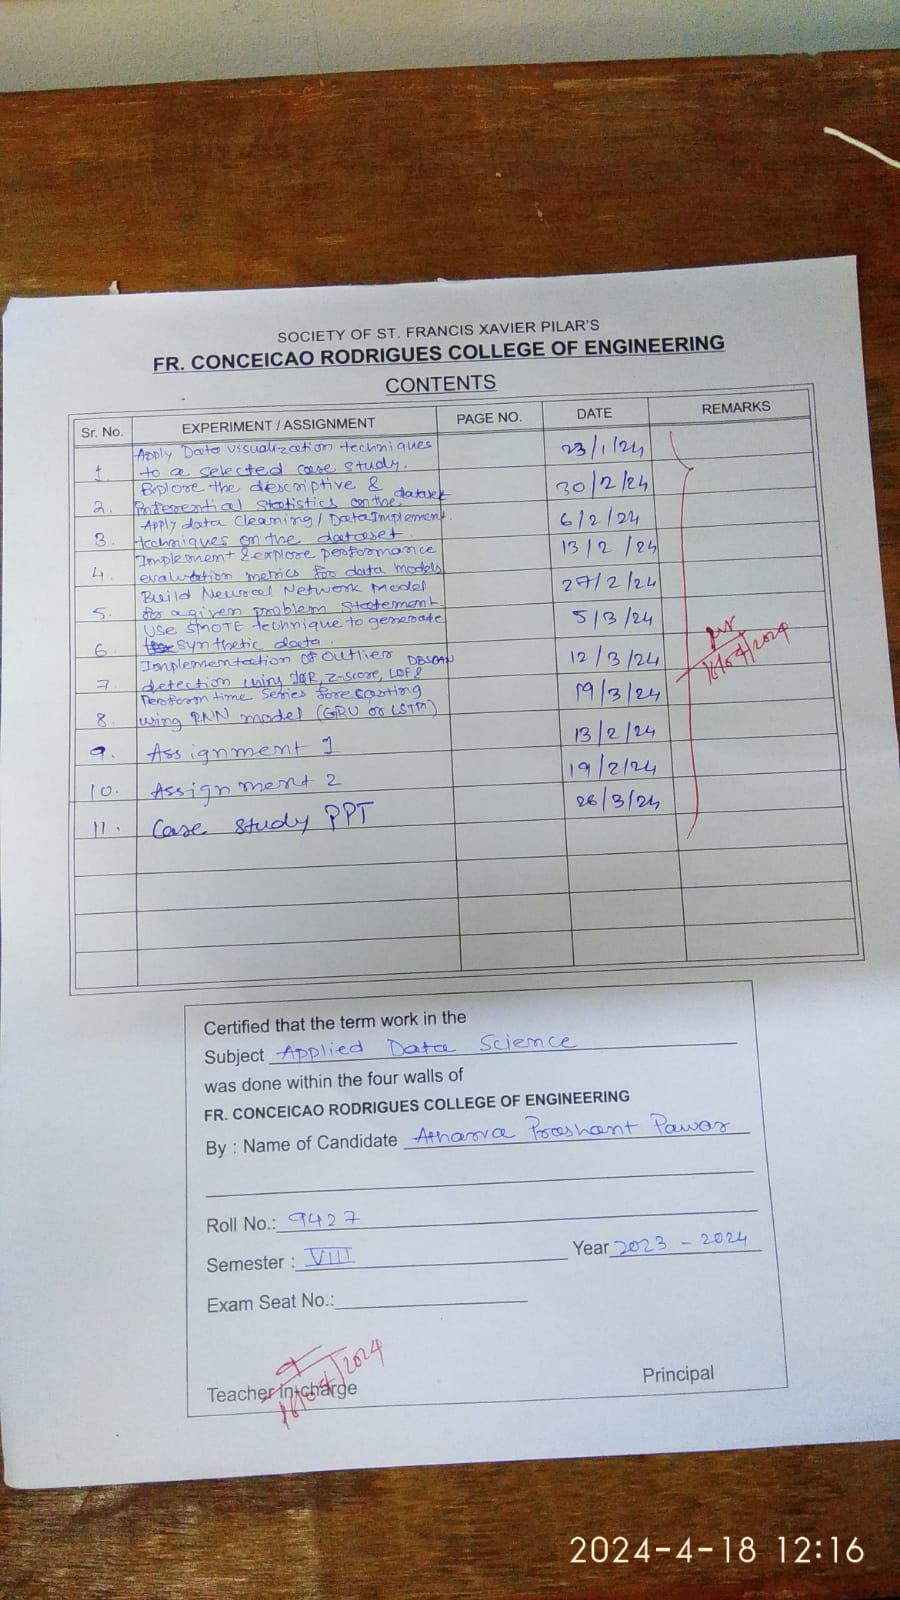 SOCIETY OF ST. FRANCIS XAVIER PILAR'S
FR. CONCEICAO RODRIGUES COLLEGE OF ENGINEERING
CONTENTS
Sr. No. EXPERIMENT / ASSIGNMENT PAGE NO. DATE REMARKS
Apply Data visualization techniques
1. to a selected case study. 23/1/24
Explore the descriptive &
2. Inferential Statistics on the dataset 30/2/24
Apply data Cleaning / Data Implement
3. techniques on the dataset. 6/2/24
Implement & explore performance
4. evaluation metrics for data models 13/2/24
Build Neural Network Model
5. for a given problem statement 27/2/24
Use SMOTE technique to generate
6. synthetic data. 5/3/24
Implementation of outlier DBSCAN
7. detection using IQR, Z-score, LOF & 12/3/24
Perform time Series forecasting
8. using RNN model (GRU or LSTM) 19/3/24
9. Assignment 1 13/2/24
10. Assignment 2 19/2/24
11. Case study PPT 26/3/24
16/04/2024
Certified that the term work in the
Subject Applied Data Science
was done within the four walls of
FR. CONCEICAO RODRIGUES COLLEGE OF ENGINEERING
By : Name of Candidate Atharva Prashant Pawar
Roll No.: 9427
Semester : VIII Year 2023 - 2024
Exam Seat No.:
16/04/2024
Teacher in-charge Principal
2024-4-18 12:16